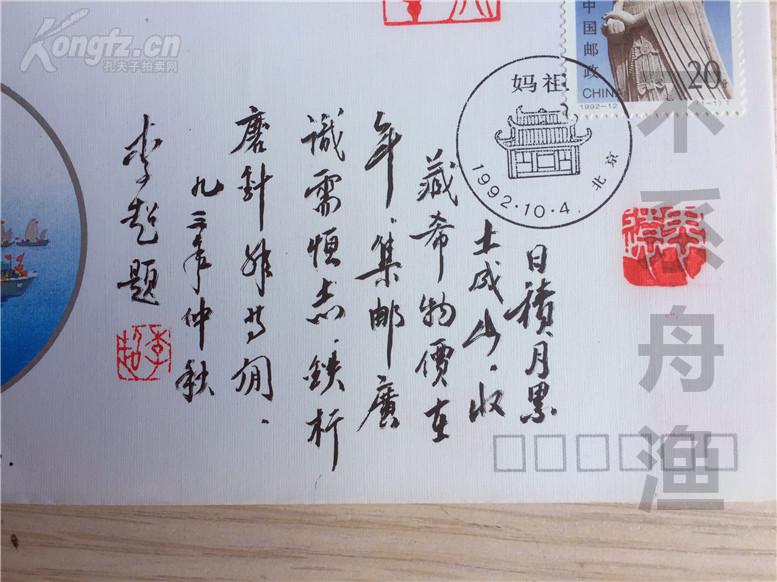 Kongfz.cn
孔夫子拍卖网
中国邮政
CHINA
20分
1992-12
妈祖
1992·10·4.
北京
日積月累
土成山.收
藏希物價在
年.集邮廣
識需恒志.鐵杵
磨針非等闲.
九三年仲秋
李超题
李超
不系舟渔